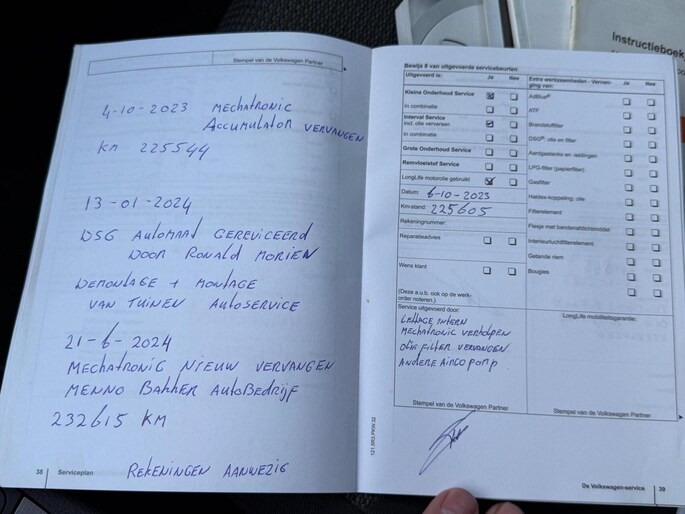 Stempel van de Volkswagen Partner
4-10-2023 MECHATRONIC
ACCUMULATOR VERVANGEN
KM 225544
13-01-2024
DSG AUTOMAAT GEREVICEERD
DOOR RONALD MORIEN
DEMONTAGE + MONTAGE
VAN TUINEN AUTOSERVICE
21-6-2024
MECHATRONIG NIEUW VERVANGEN
MENNO BAKKER AUTOBEDRIJF
232615 KM
REKENINGEN AANWEZIG
38 Serviceplan
Instructieboek
Bewijs 8 van uitgevoerde servicebeurten:
Uitgevoerd is: Ja Nee
Kleine Onderhoud Service
in combinatie
Interval Service
incl. olie verversen
in combinatie
Grote Onderhoud Service
Remvloeistof Service
LongLife motorolie gebruikt
Datum: 6-10-2023
Km-stand: 225605
Rekeningnummer:
Reparatieadvies
Wens klant
(Deze a.u.b. ook op de werk-
order noteren.)
Extra werkzaamheden - Vervan-
ging van: Ja Nee
AdBlue®
ATF
Brandstoffilter
DSG®: olie en filter
Aardgastanks en -leidingen
LPG-filter (papierfilter)
Gasfilter
Haldex-koppeling: olie
Filterelement
Flesje met bandenafdichtmiddel
Interieurluchtfilterelement
Getande riem
Bougies
Service uitgevoerd door:
LEKKAGE INTERN
MECHATRONIC VERHOLPEN
OLIE FILTER VERVANGEN
ANDERE AIRCO POMP
Stempel van de Volkswagen Partner
LongLife mobiliteitsgarantie:
Stempel van de Volkswagen Partner
121.5R3.PKW.32
De Volkswagen-service 39